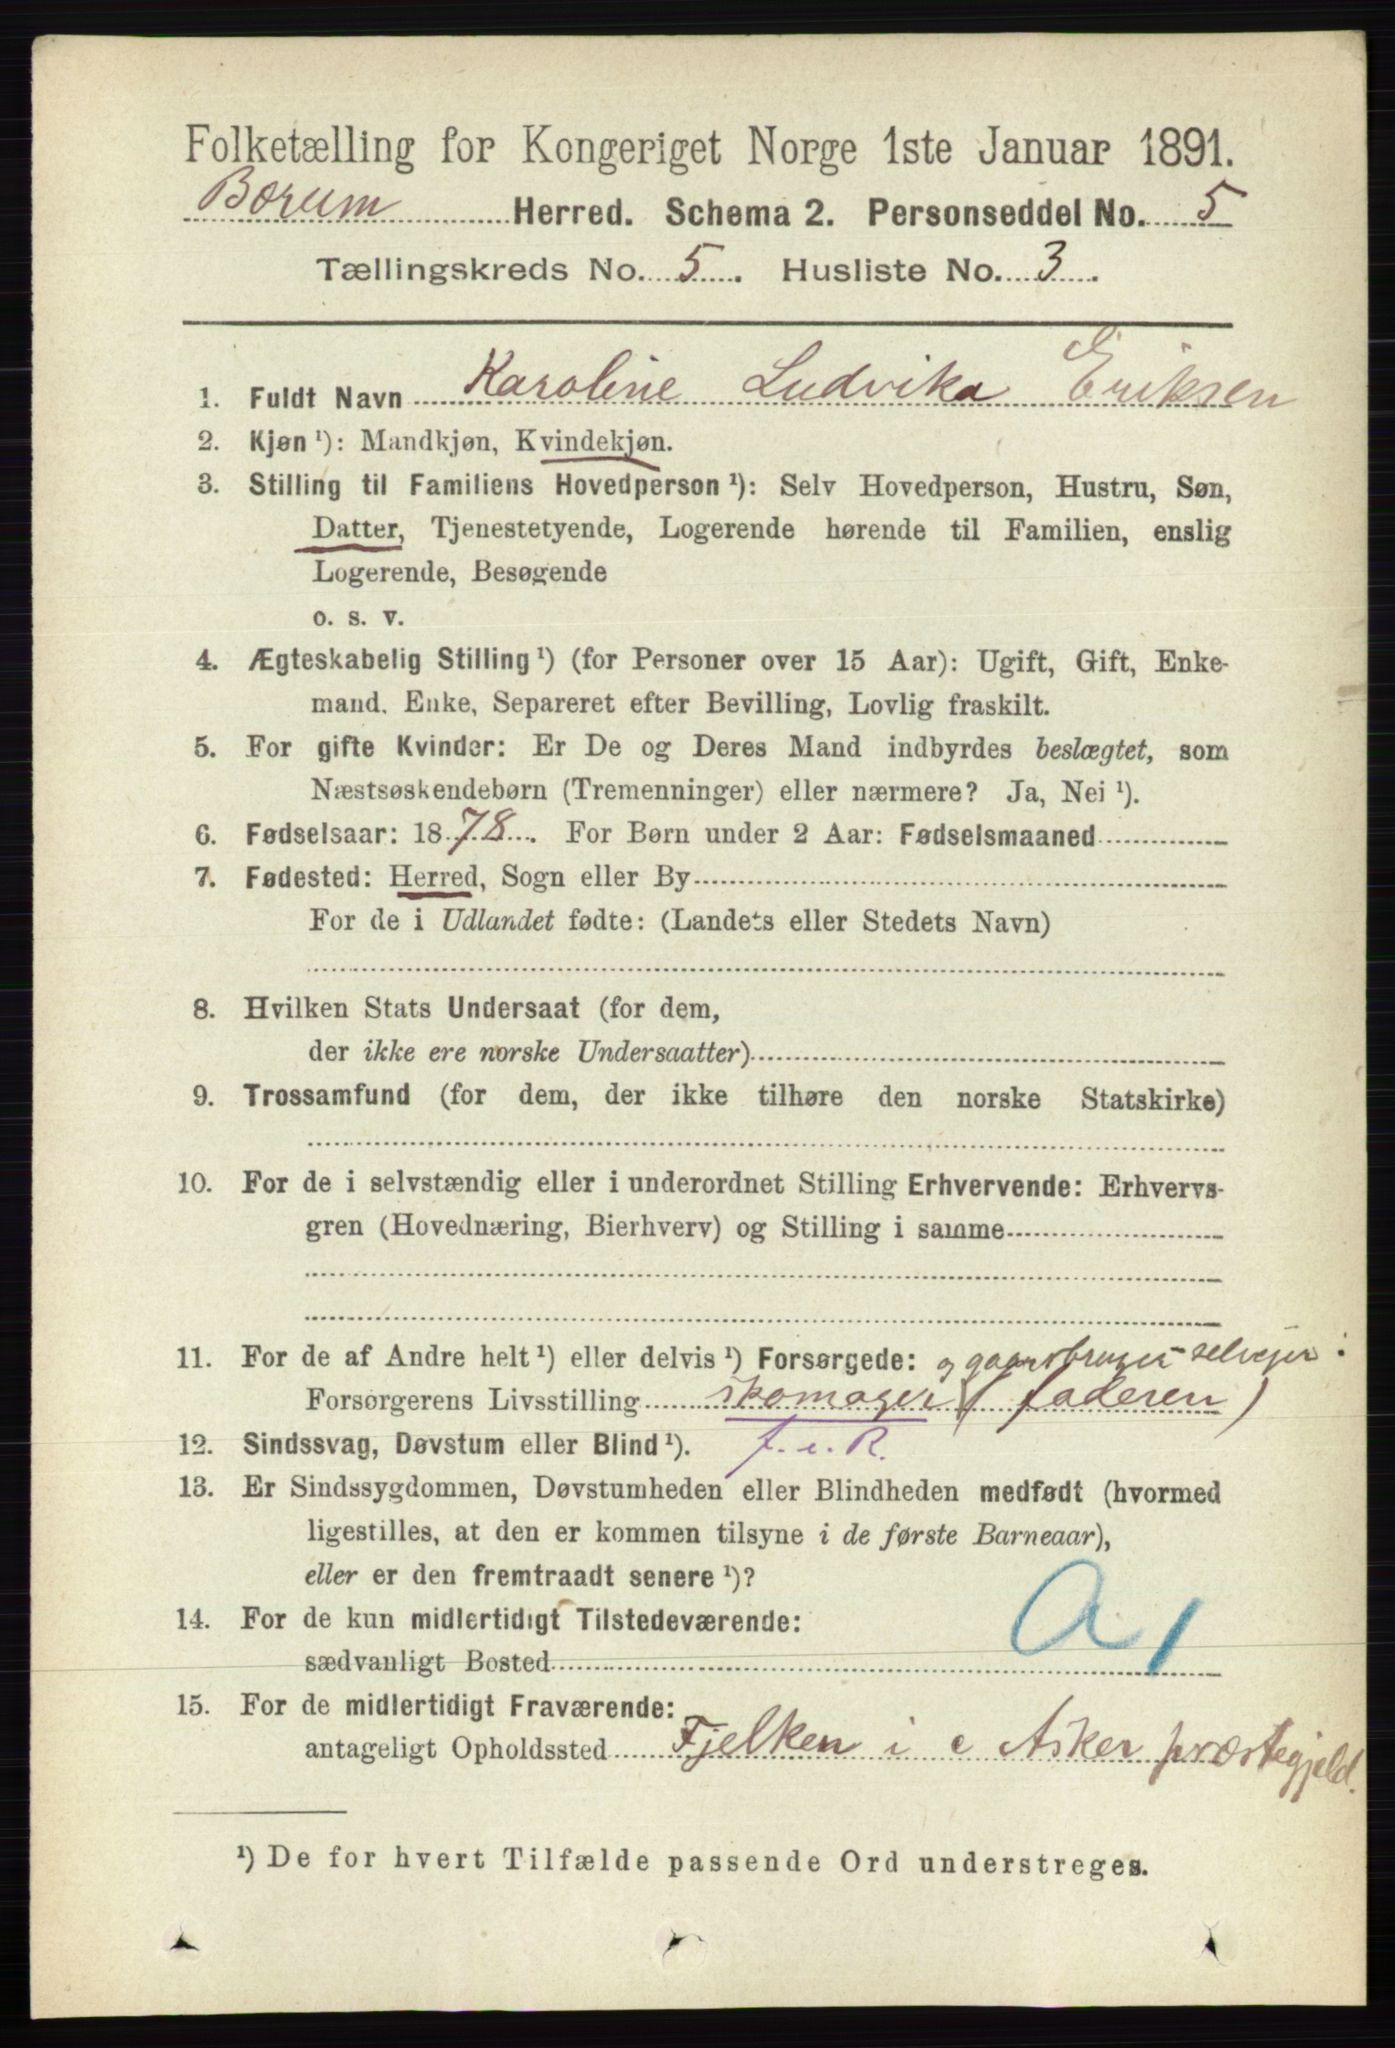 Folketælling for Kongeriget Norge 1ste Januar 1891.
Bærum Herred. Schema 2. Personseddel No. 5
Tællingskreds No. 5. Husliste No. 3.
1. Fuldt Navn Karoline Ludvika Eriksen
2. Kjøn ¹): Mandkjøn, Kvindekjøn.
3. Stilling til Familiens Hovedperson ¹): Selv Hovedperson, Hustru, Søn,
Datter, Tjenestetyende, Logerende hørende til Familien, enslig
Logerende, Besøgende
o. s. v.
4. Ægteskabelig Stilling ¹) (for Personer over 15 Aar): Ugift, Gift, Enke-
mand, Enke, Separeret efter Bevilling, Lovlig fraskilt.
5. For gifte Kvinder: Er De og Deres Mand indbyrdes beslægtet, som
Næstsøskendebørn (Tremenninger) eller nærmere? Ja, Nei ¹).
6. Fødselsaar: 1878. For Børn under 2 Aar: Fødselsmaaned
7. Fødested: Herred, Sogn eller By
For de i Udlandet fødte: (Landets eller Stedets Navn)
8. Hvilken Stats Undersaat (for dem,
der ikke ere norske Undersaatter)
9. Trossamfund (for dem, der ikke tilhøre den norske Statskirke)
10. For de i selvstændig eller i underordnet Stilling Erhvervende: Erhvervs-
gren (Hovednæring, Bierhverv) og Stilling i samme
11. For de af Andre helt ¹) eller delvis ¹) Forsørgede: og gaardbruger selveier:
Forsørgerens Livsstilling skomager (faderen)
12. Sindssvag, Døvstum eller Blind ¹). f. u. R.
13. Er Sindssygdommen, Døvstumheden eller Blindheden medfødt (hvormed
ligestilles, at den er kommen tilsyne i de første Barneaar),
eller er den fremtraadt senere ¹)?
14. For de kun midlertidigt Tilstedeværende:
sædvanligt Bosted A 1
15. For de midlertidigt Fraværende:
antageligt Opholdssted Fjelken i Asker præstegjeld.
¹) De for hvert Tilfælde passende Ord understreges.